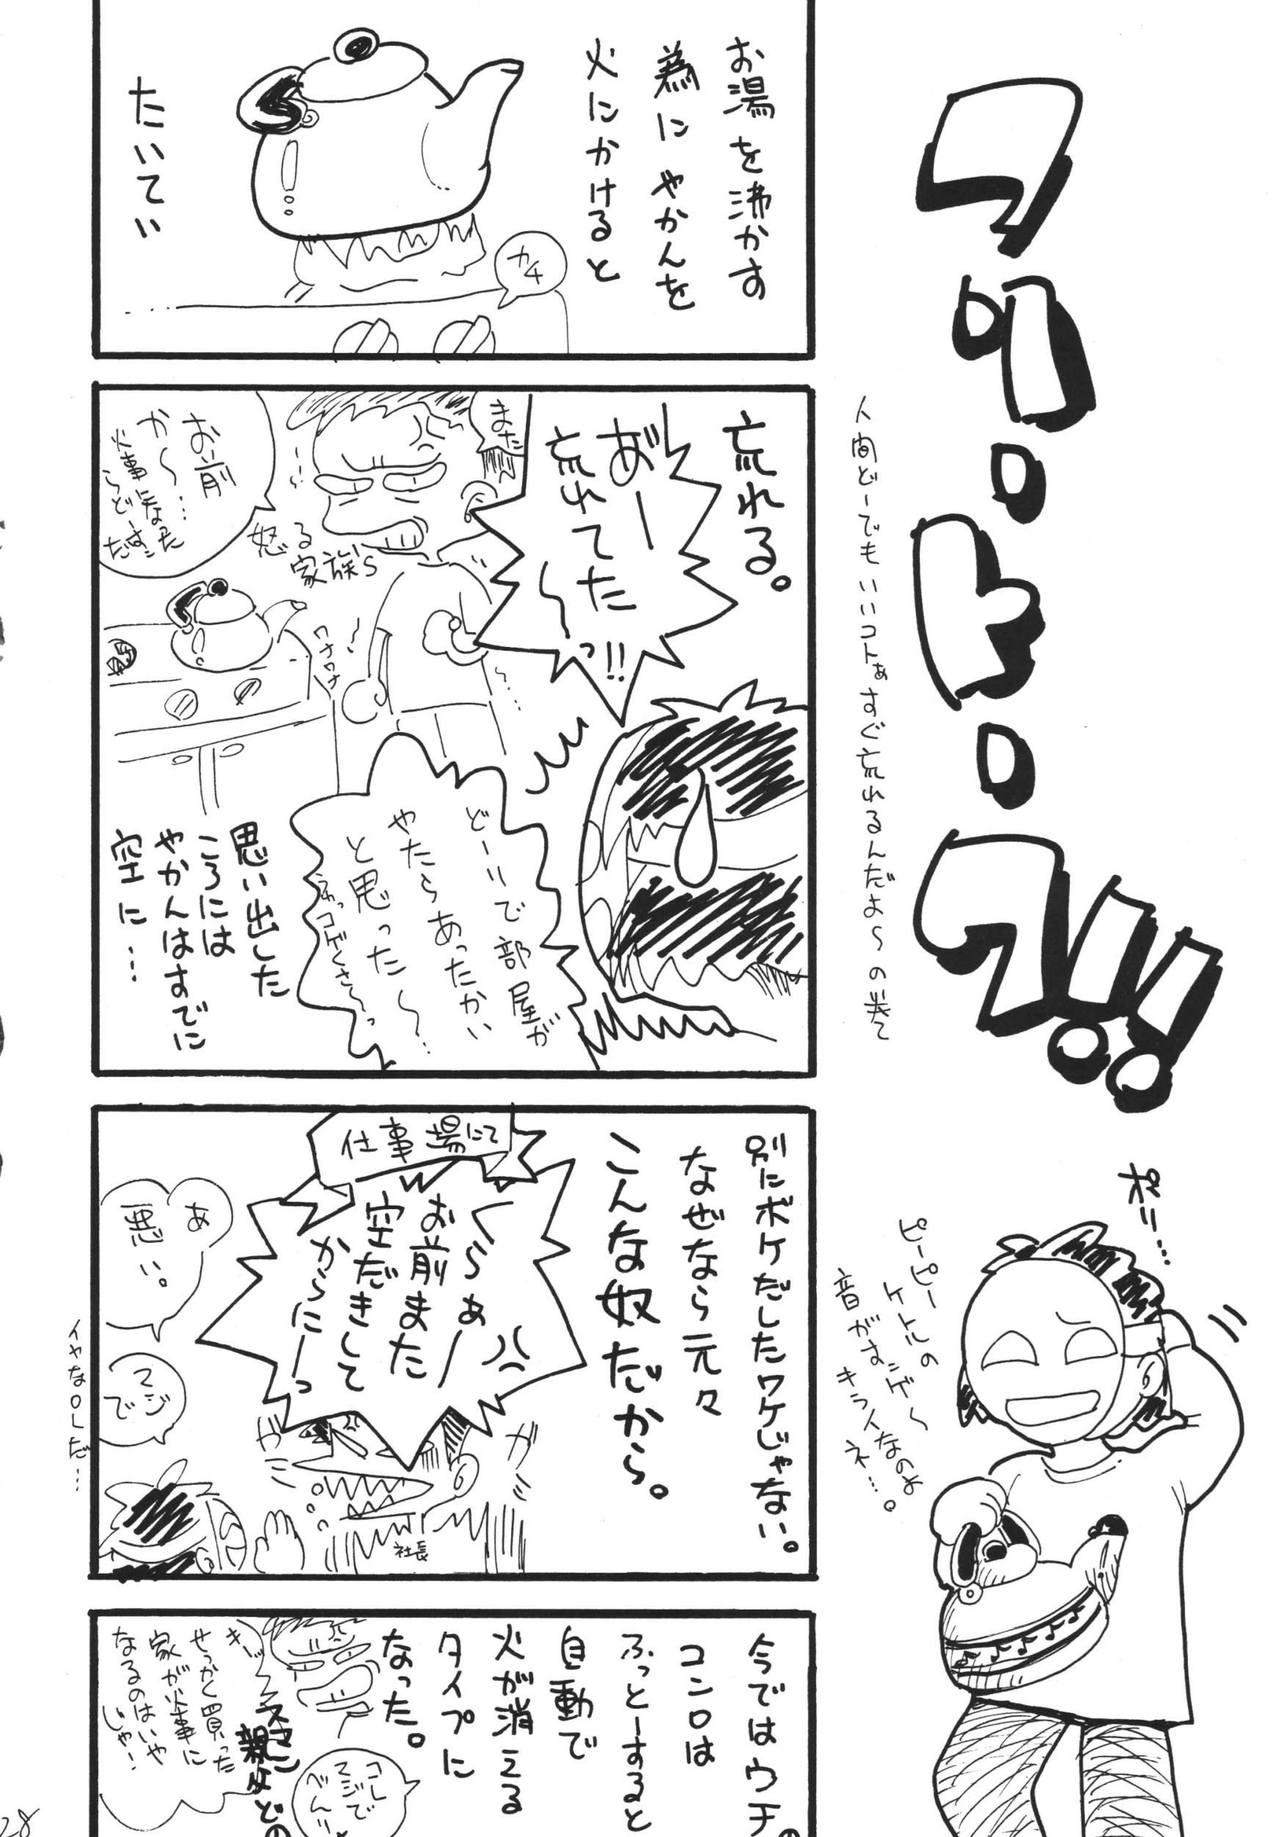 フリートーク!!
人間どーでもいいコトぁすぐ忘れるんだよ〜の巻て
ポリ…
ピーピー
ケトルの
音がすンゲ〜
キライなのよ
ネ…。
お湯を沸かす
為にやかんを
火にかけると
たいてい
カチ
忘れる。
あ゛ーー
忘れてた
〜〜っ!!
また
お前
か〜…
火事になった
らどーすん
だ
怒る
家族's
ワナワナ
どーりで部屋が
やたらあったかい
と思った〜…
思い出した
ころには
やかんはすでに
空に…
別にボケだしたワケじゃない。
なぜなら元々
こんな奴だから。
仕事場にて
らぁーー
お前また
空だきして
からにーっ
ガー
社長
ぁ
悪い。
マジ
で
イヤなOLだ…
今ではウチの
コンロは
ふっとーすると
自動で
火が消える
タイプに
なった。
コレ
マジで
べんり
せっかく買った
家が火事に
なるのはいや
じゃ!
スマン
親父どの
28